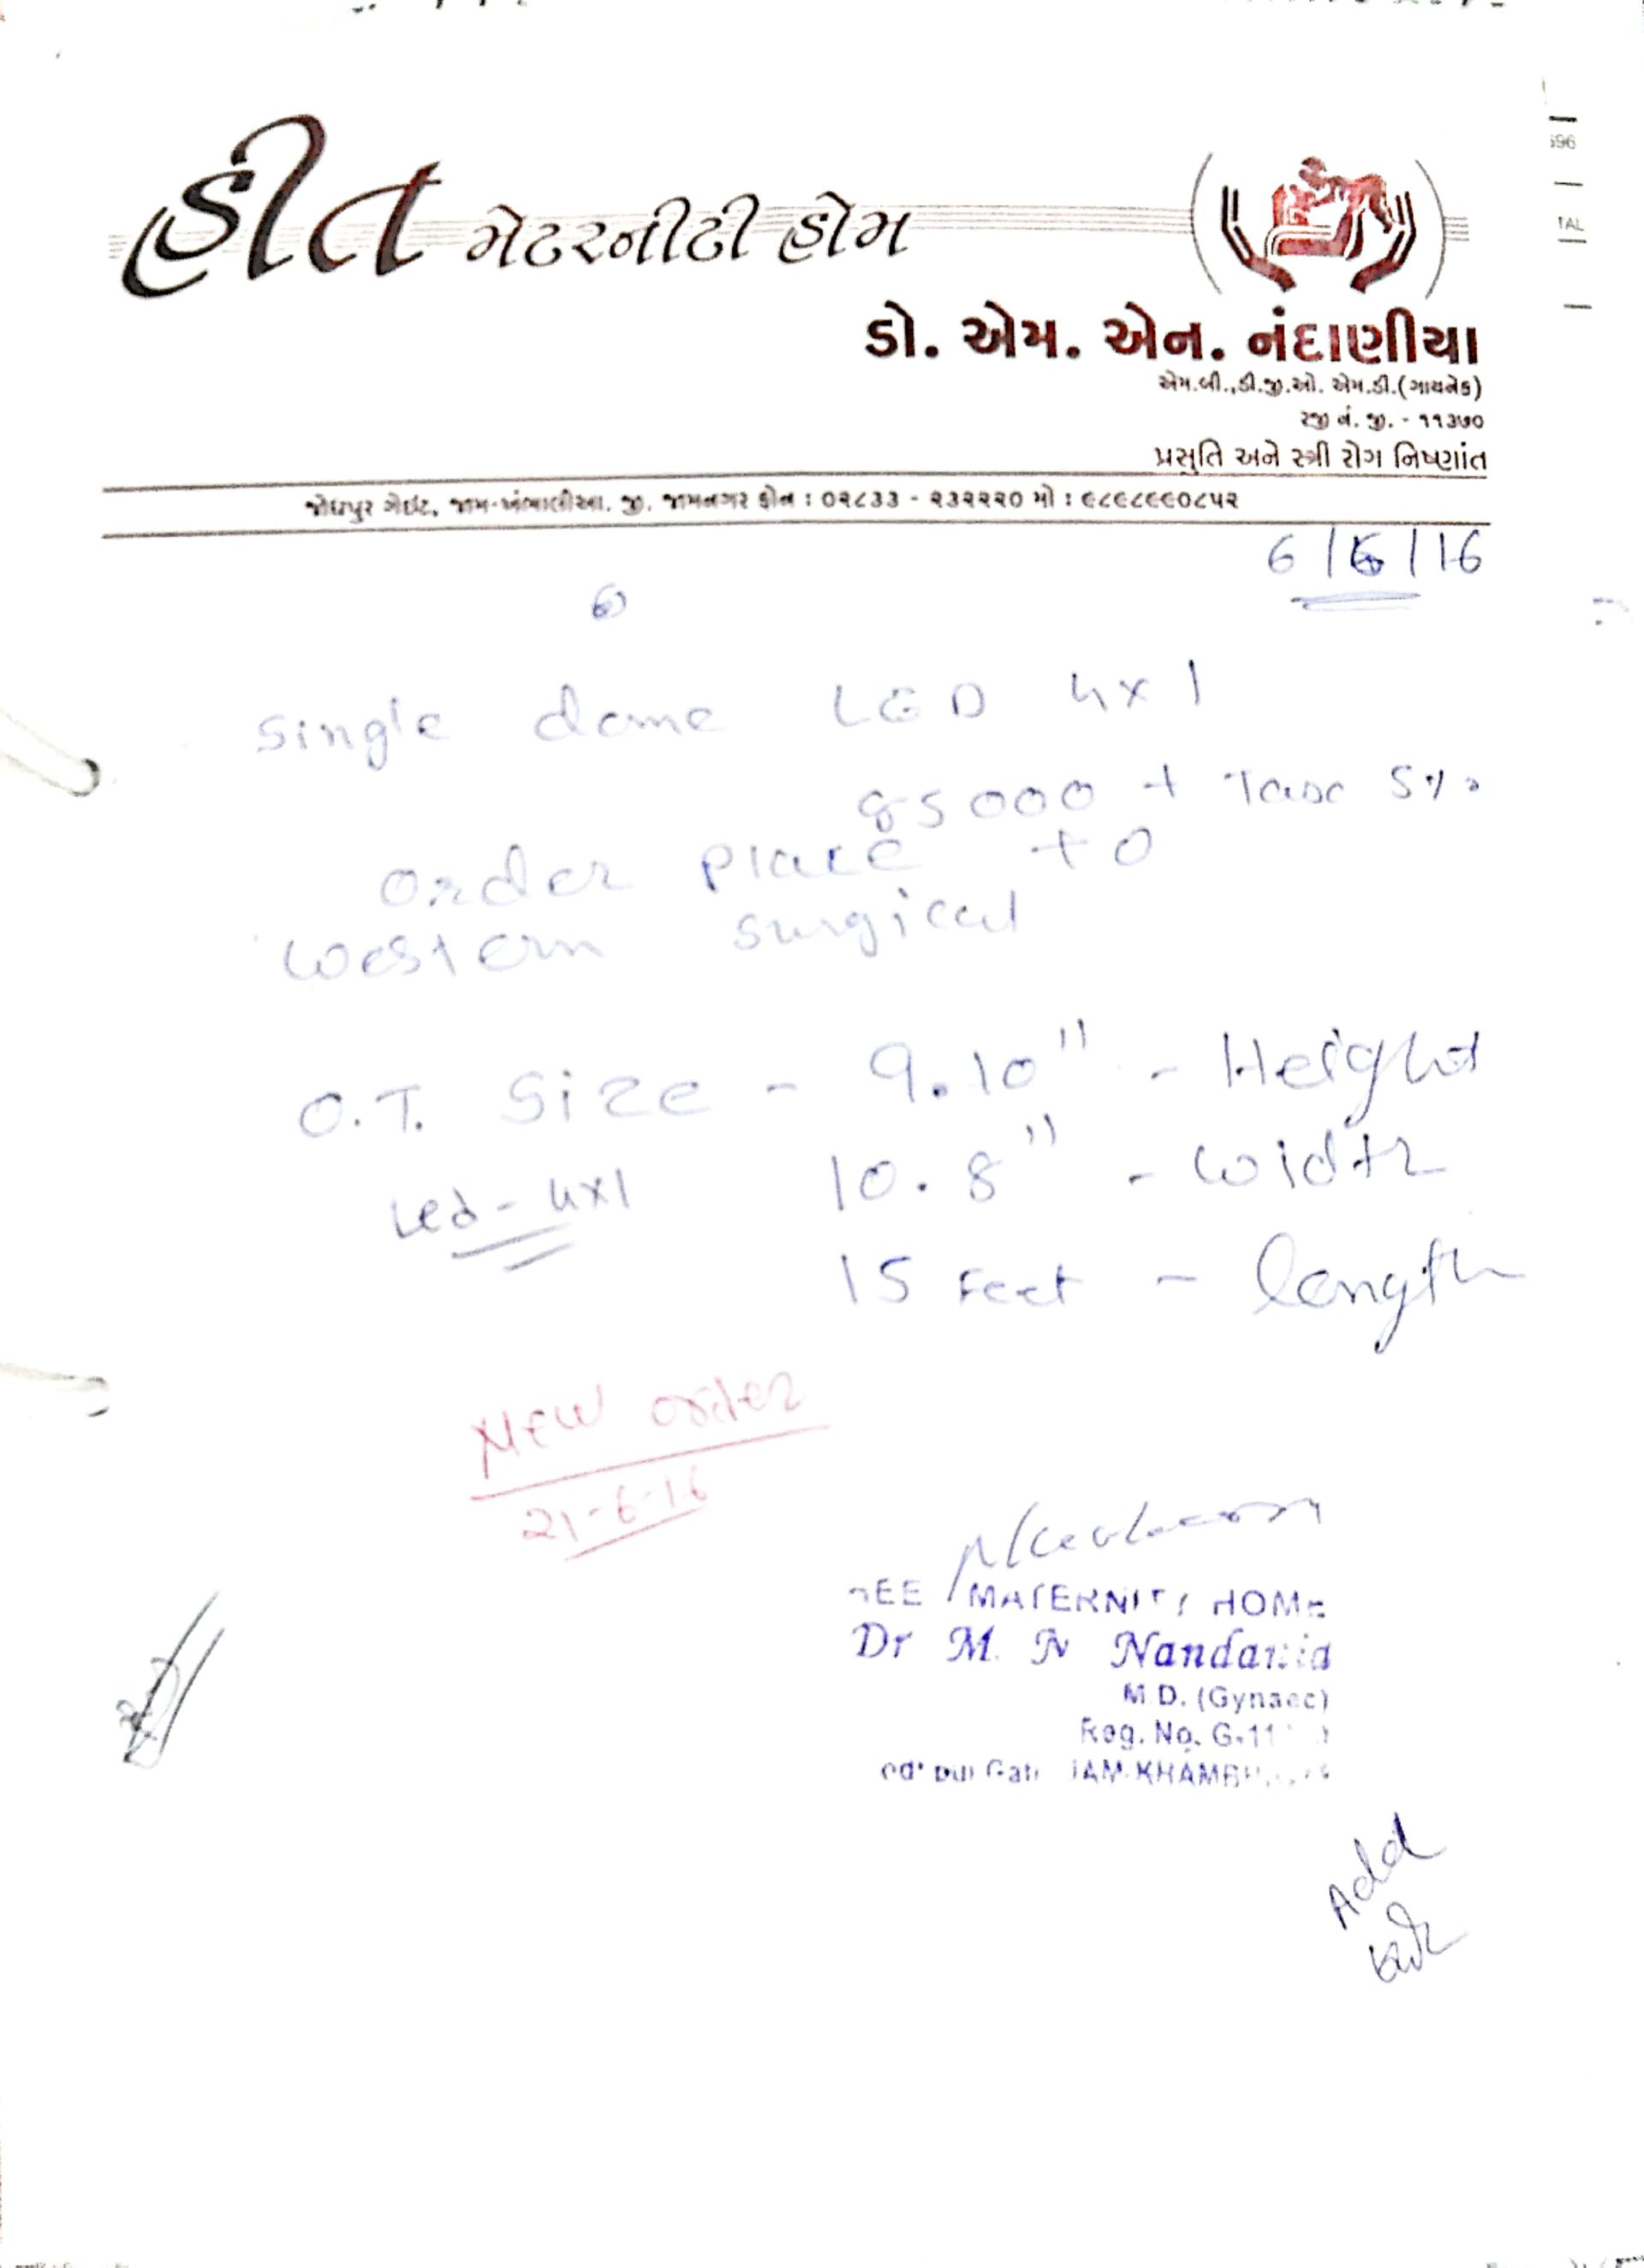 હીત મેટરનીટી હોમ
ડો. એમ. એન. નંદાણીયા
એમ.બી.,ડી.જી.ઓ. એમ.ડી.(ગાયનેક)
રજી નં. જી. - ૧૧૩૭૦
પ્રસુતિ અને સ્ત્રી રોગ નિષ્ણાંત
જોધપુર ગેઇટ, જામ-ખંભાલીઆ. જી. જામનગર ફોન : ૦૨૮૩૩ - ૨૩૨૨૨૦ મો : ૯૮૯૮૯૯૦૮૫૨
6/6/16
Single dome LED 4x1
85000 + Tax 5%
Order place to
Western Surgical
O.T. Size - 9.10" - Height
Led - 4x1 10.8" - Width
15 Feet - length
New order
21-6-16
MATERNITY HOME
Dr M. N Nandania
M.D. (Gynaec)
Reg. No. G-11
JAM-KHAMBH
Add
596
TAL